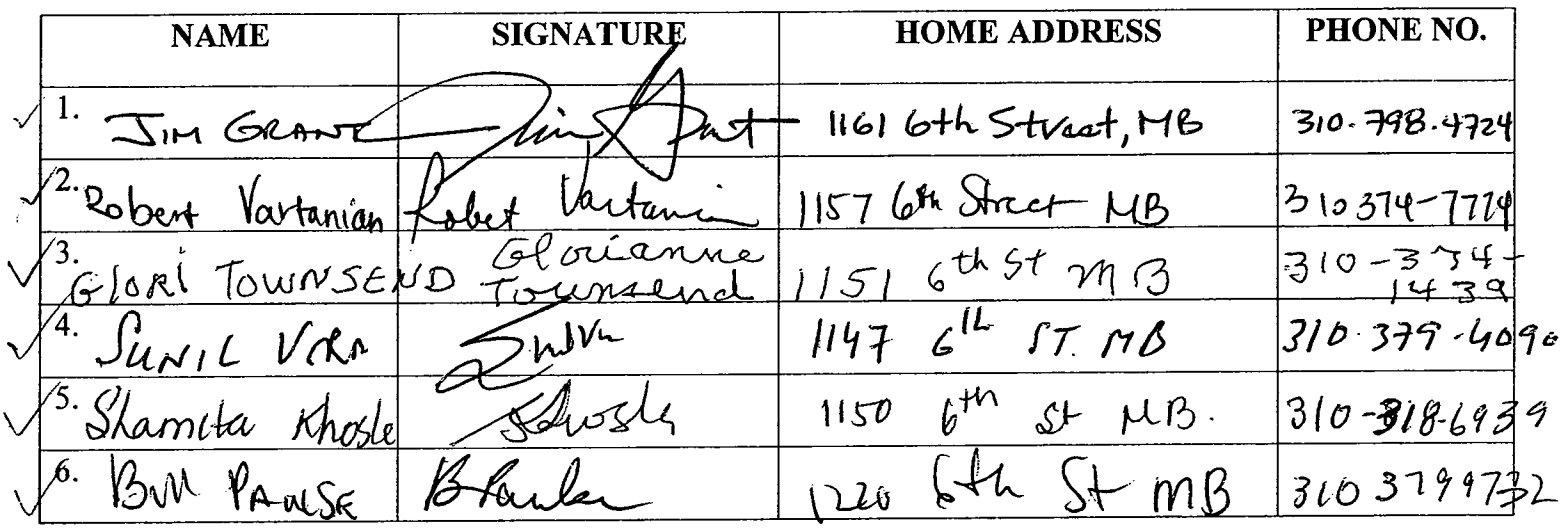 NAME SIGNATURE HOME ADDRESS PHONE NO.
1. JIM GRANT Jim Grant 1161 6th Street, MB 310.798.4724
2. Robert Vartanian Robert Vartanian 1157 6th Street MB 310 374-7774
3. GlORi TOWNSEND Glorianne Townsend 1151 6th St MB 310-374-1439
4. SUNIL 1147 6th ST. MB 310-379-4090
5. Shamita Khosle 1150 6th St MB. 310-318-6939
6. Bill 1220 6th St MB 310 3799732